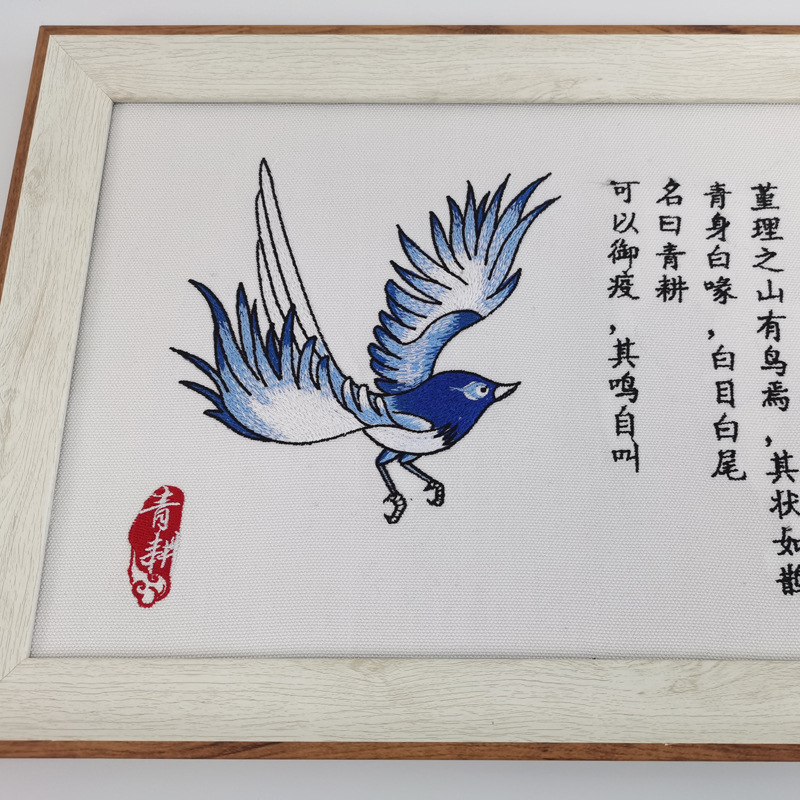 堇理之山有鸟焉,其状如鹊
青身白喙,白目白尾
名曰青耕
可以御疫,其鸣自叫
青耕